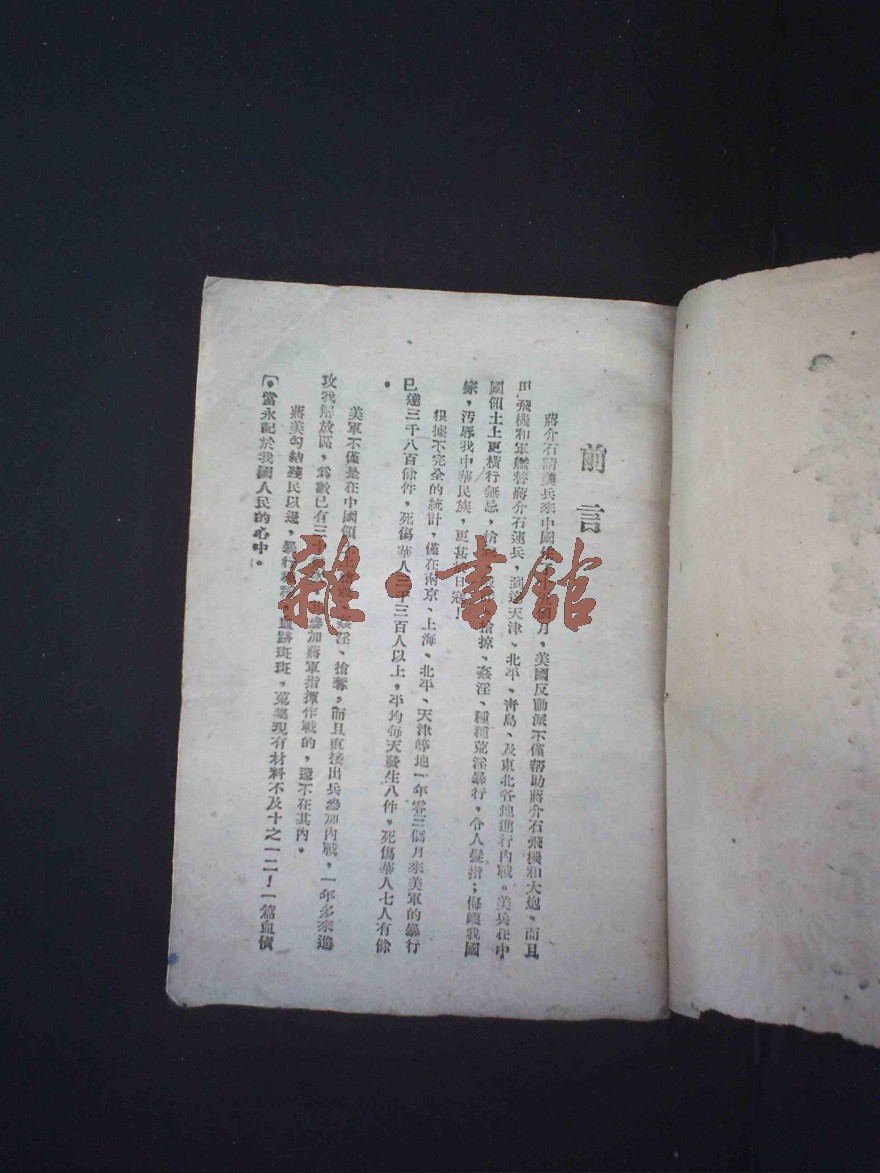 前言
蔣介石請美兵來中國　　個月，美國反動派不僅幫助蔣介石飛機和大炮。而且
用飛機和軍艦替蔣介石運兵，到達天津、北平、青島、及東北各地進行內戰。美兵在中
國領土上更橫行無忌，搶　搶掠、姦淫、種種荒淫暴行，令人髮指；侮蔑我國
家，汚辱我中華民族，更甚　日寇！
根據不完全的統計，僅在南京、上海、北平、天津等地一年零三個月來美軍的暴行
已達三千八百餘件，死傷華人三千三百人以上，平均每天發生八件。死傷華人七人有餘
。
美軍不僅是在中國領　上　姦淫、搶奪，而且直接出兵參加內戰，一年多來進
攻我解放區，爲數已有三十　參加蔣軍指揮作戰的，還不在其內。
蔣美勾結殘民以逞，暴行　血跡斑斑，蒐集現有材料不及十之一二！一篇血債
，當永記於我國人民的心中。
雜·書館